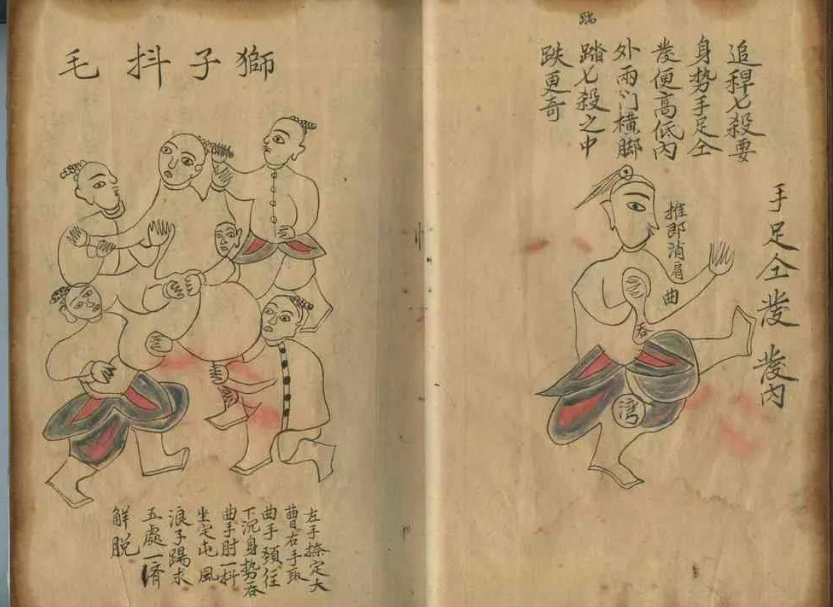 追稈七殺要
身势手足仝
發便高低內
外兩门橫脚
踏七殺之中
跌更奇
手足仝發 發內
推即消肩曲
吞
湾
獅子抖毛
左手捺定大
曹右手取
曲手頦任
下沉身势吞
曲手肘一抖
坐定屯風
浪子踢求
五處一濟
解脱